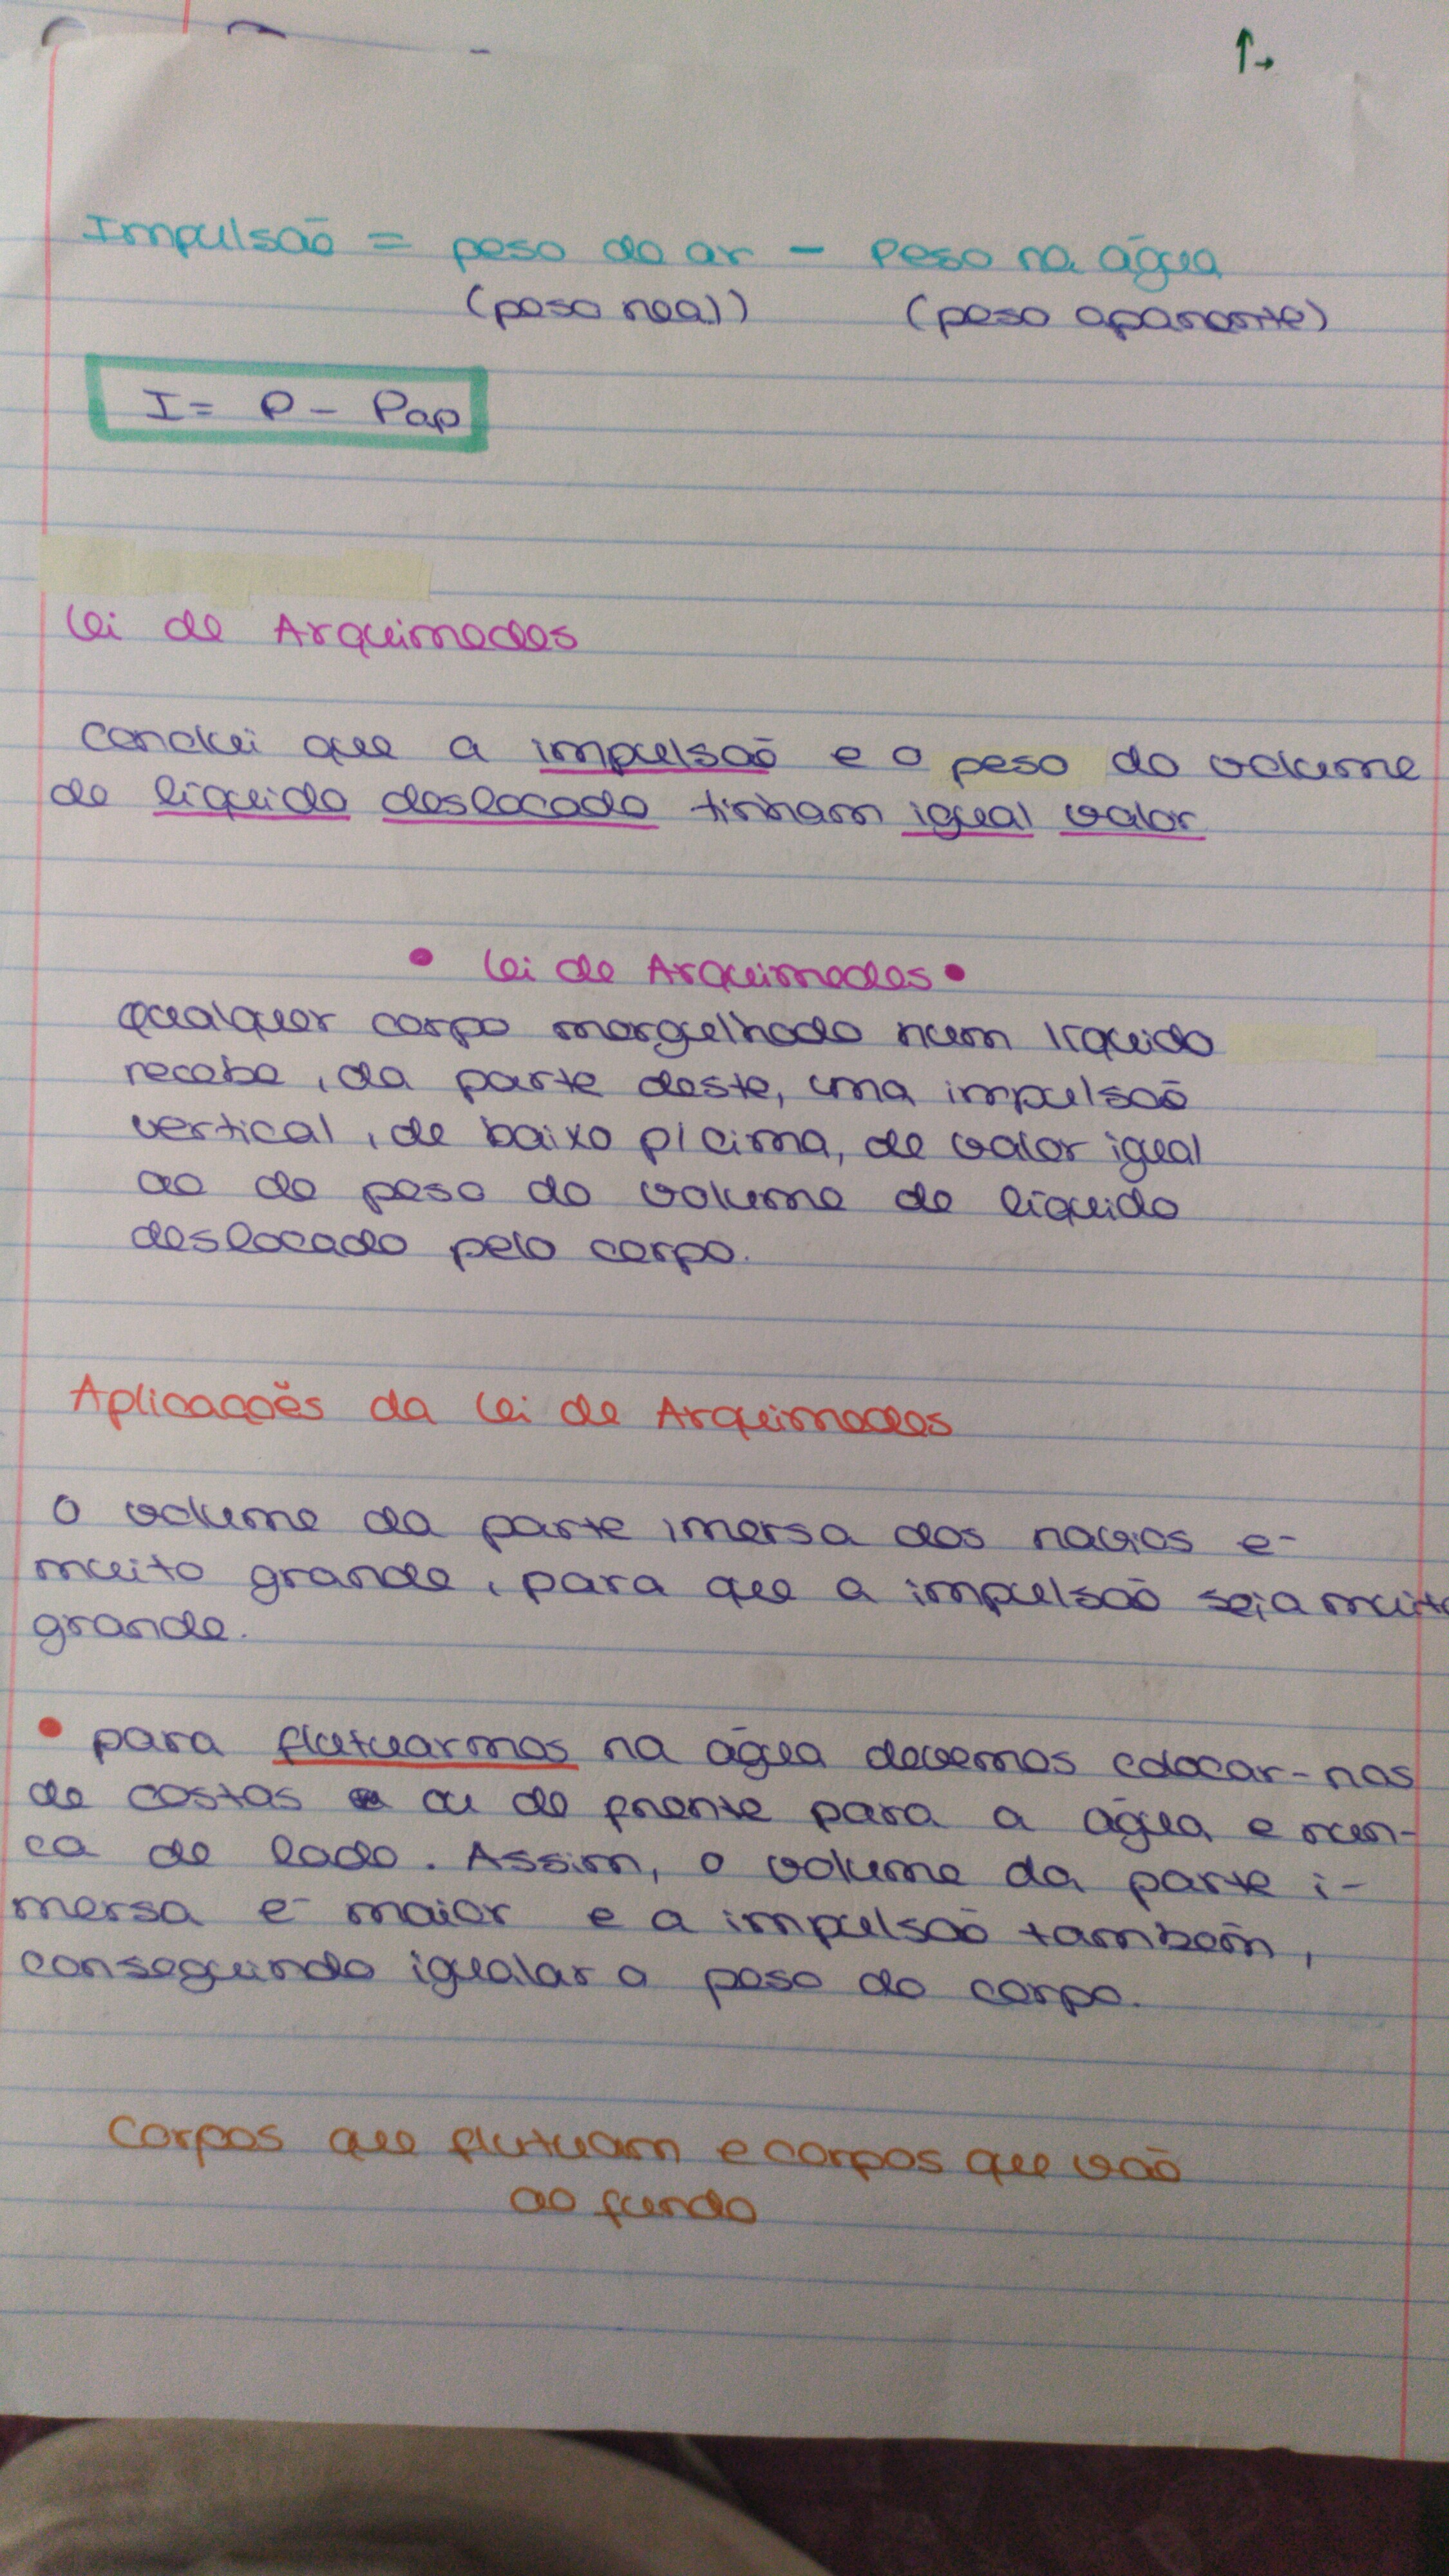 Impulsão = peso do ar - Peso na água
(peso real) (peso aparente)
I = P - Pap
Lei de Arquimedes
Conclui que a impulsão e o peso do volume
de líquido deslocado tinham igual valor
• Lei de Arquimedes •
Qualquer corpo mergulhado num líquido
recebe, da parte deste, uma impulsão
vertical, de baixo p/ cima, de valor igual
ao do peso do volume de líquido
deslocado pelo corpo.
Aplicações da Lei de Arquimedes
O volume da parte imersa dos navios é
muito grande, para que a impulsão seja muito
grande.
• para flutuarmos na água devemos colocar-nos
de costas ou de frente para a água e nun-
ca de lado. Assim, o volume da parte i-
mersa é maior e a impulsão também,
conseguindo igualar o peso do corpo.
Corpos que flutuam e corpos que vão
ao fundo